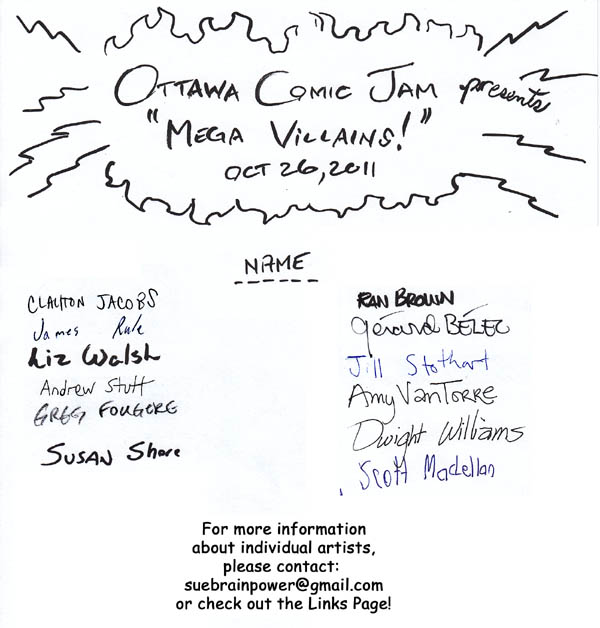 OTTAWA COMIC JAM presents
"MEGA VILLAINS!"
OCT 26, 2011
NAME
CLAYTON JACOBS
James Rule
Liz Walsh
Andrew Stutt
GREGG FOURGERE
SUSAN Shore
RAN BROWN
gérard BÉLEC
Jill Stothart
Amy VanTorre
Dwight Williams
Scott Maclellan
For more information
about individual artists,
please contact:
suebrainpower@gmail.com
or check out the Links Page!